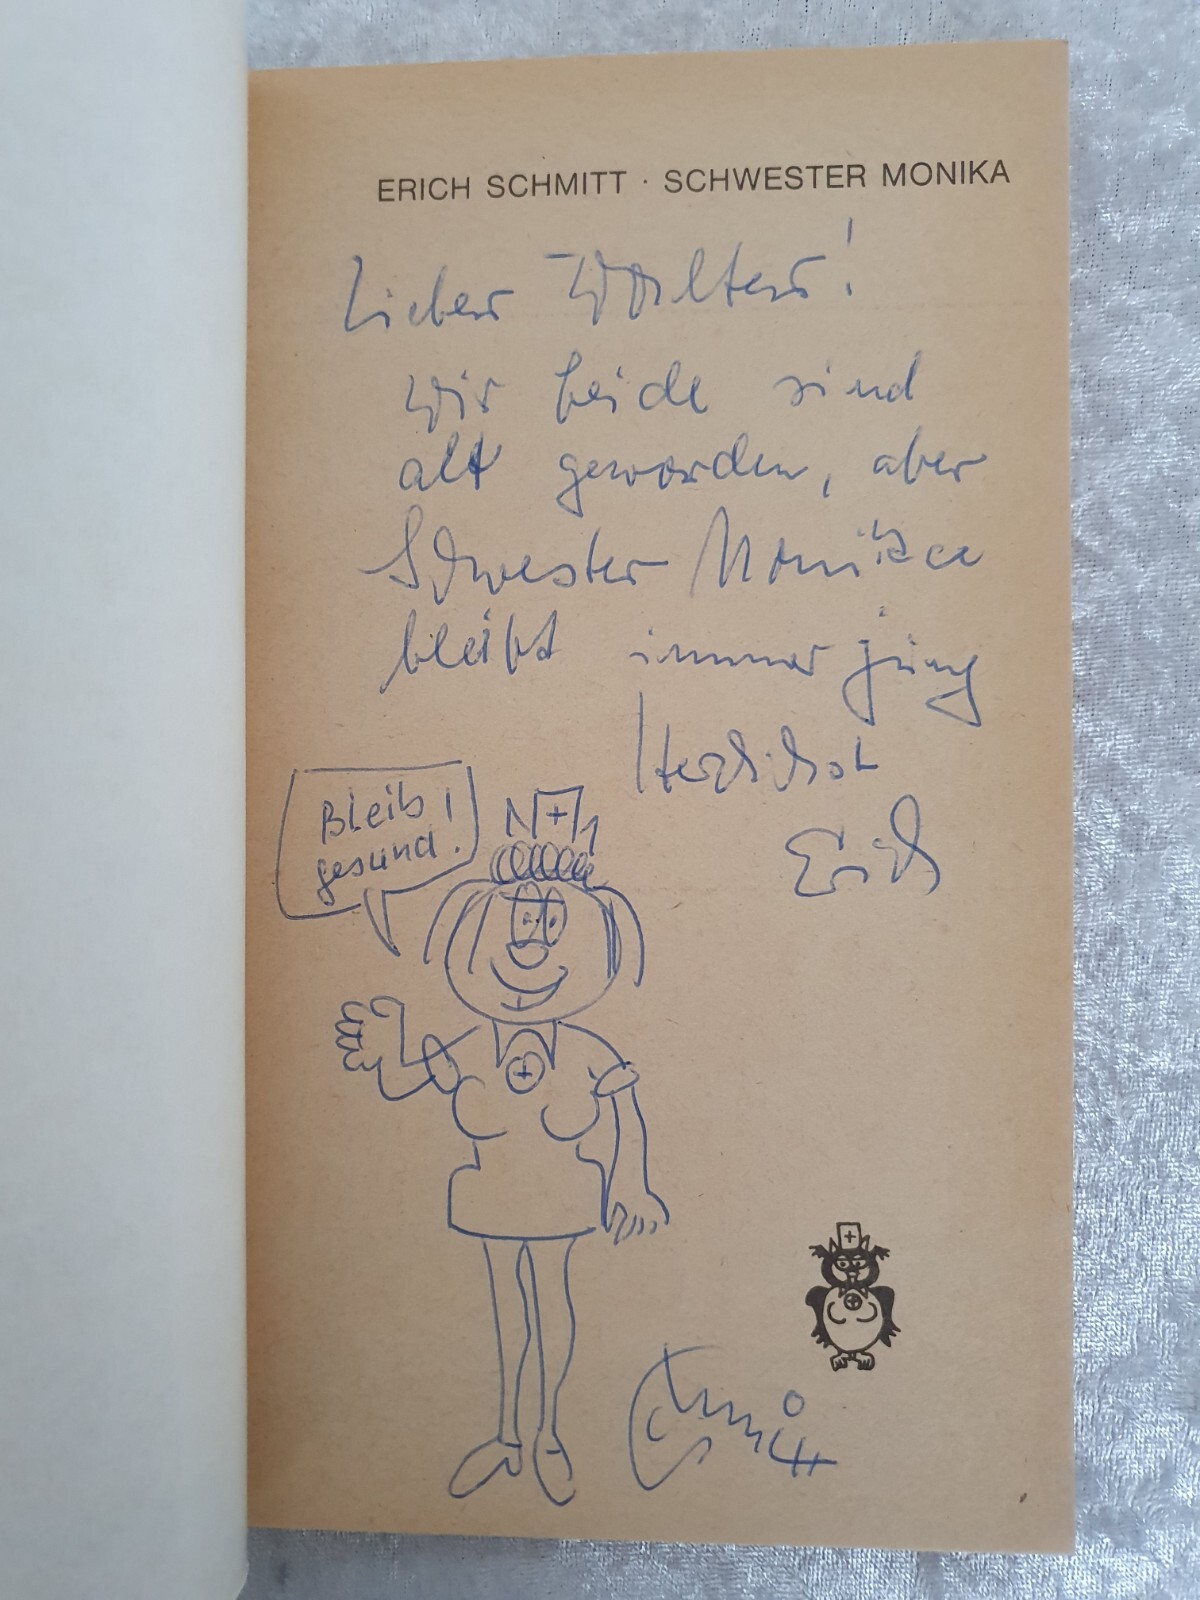 ERICH SCHMITT · SCHWESTER MONIKA
Lieber Walter!
Wir beide sind
alt geworden, aber
Schwester Monika
bleibt immer jung
Herzlichst
Erich
Bleib
gesund!
Schmitt